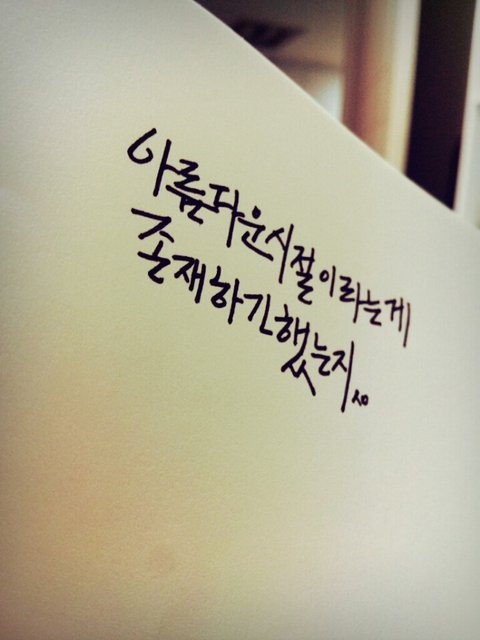 아름다운시절이라는게
존재하긴했는지。